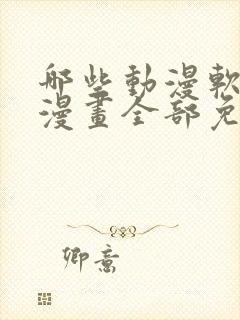 哪些動漫軟
漫畫全部免
卿意